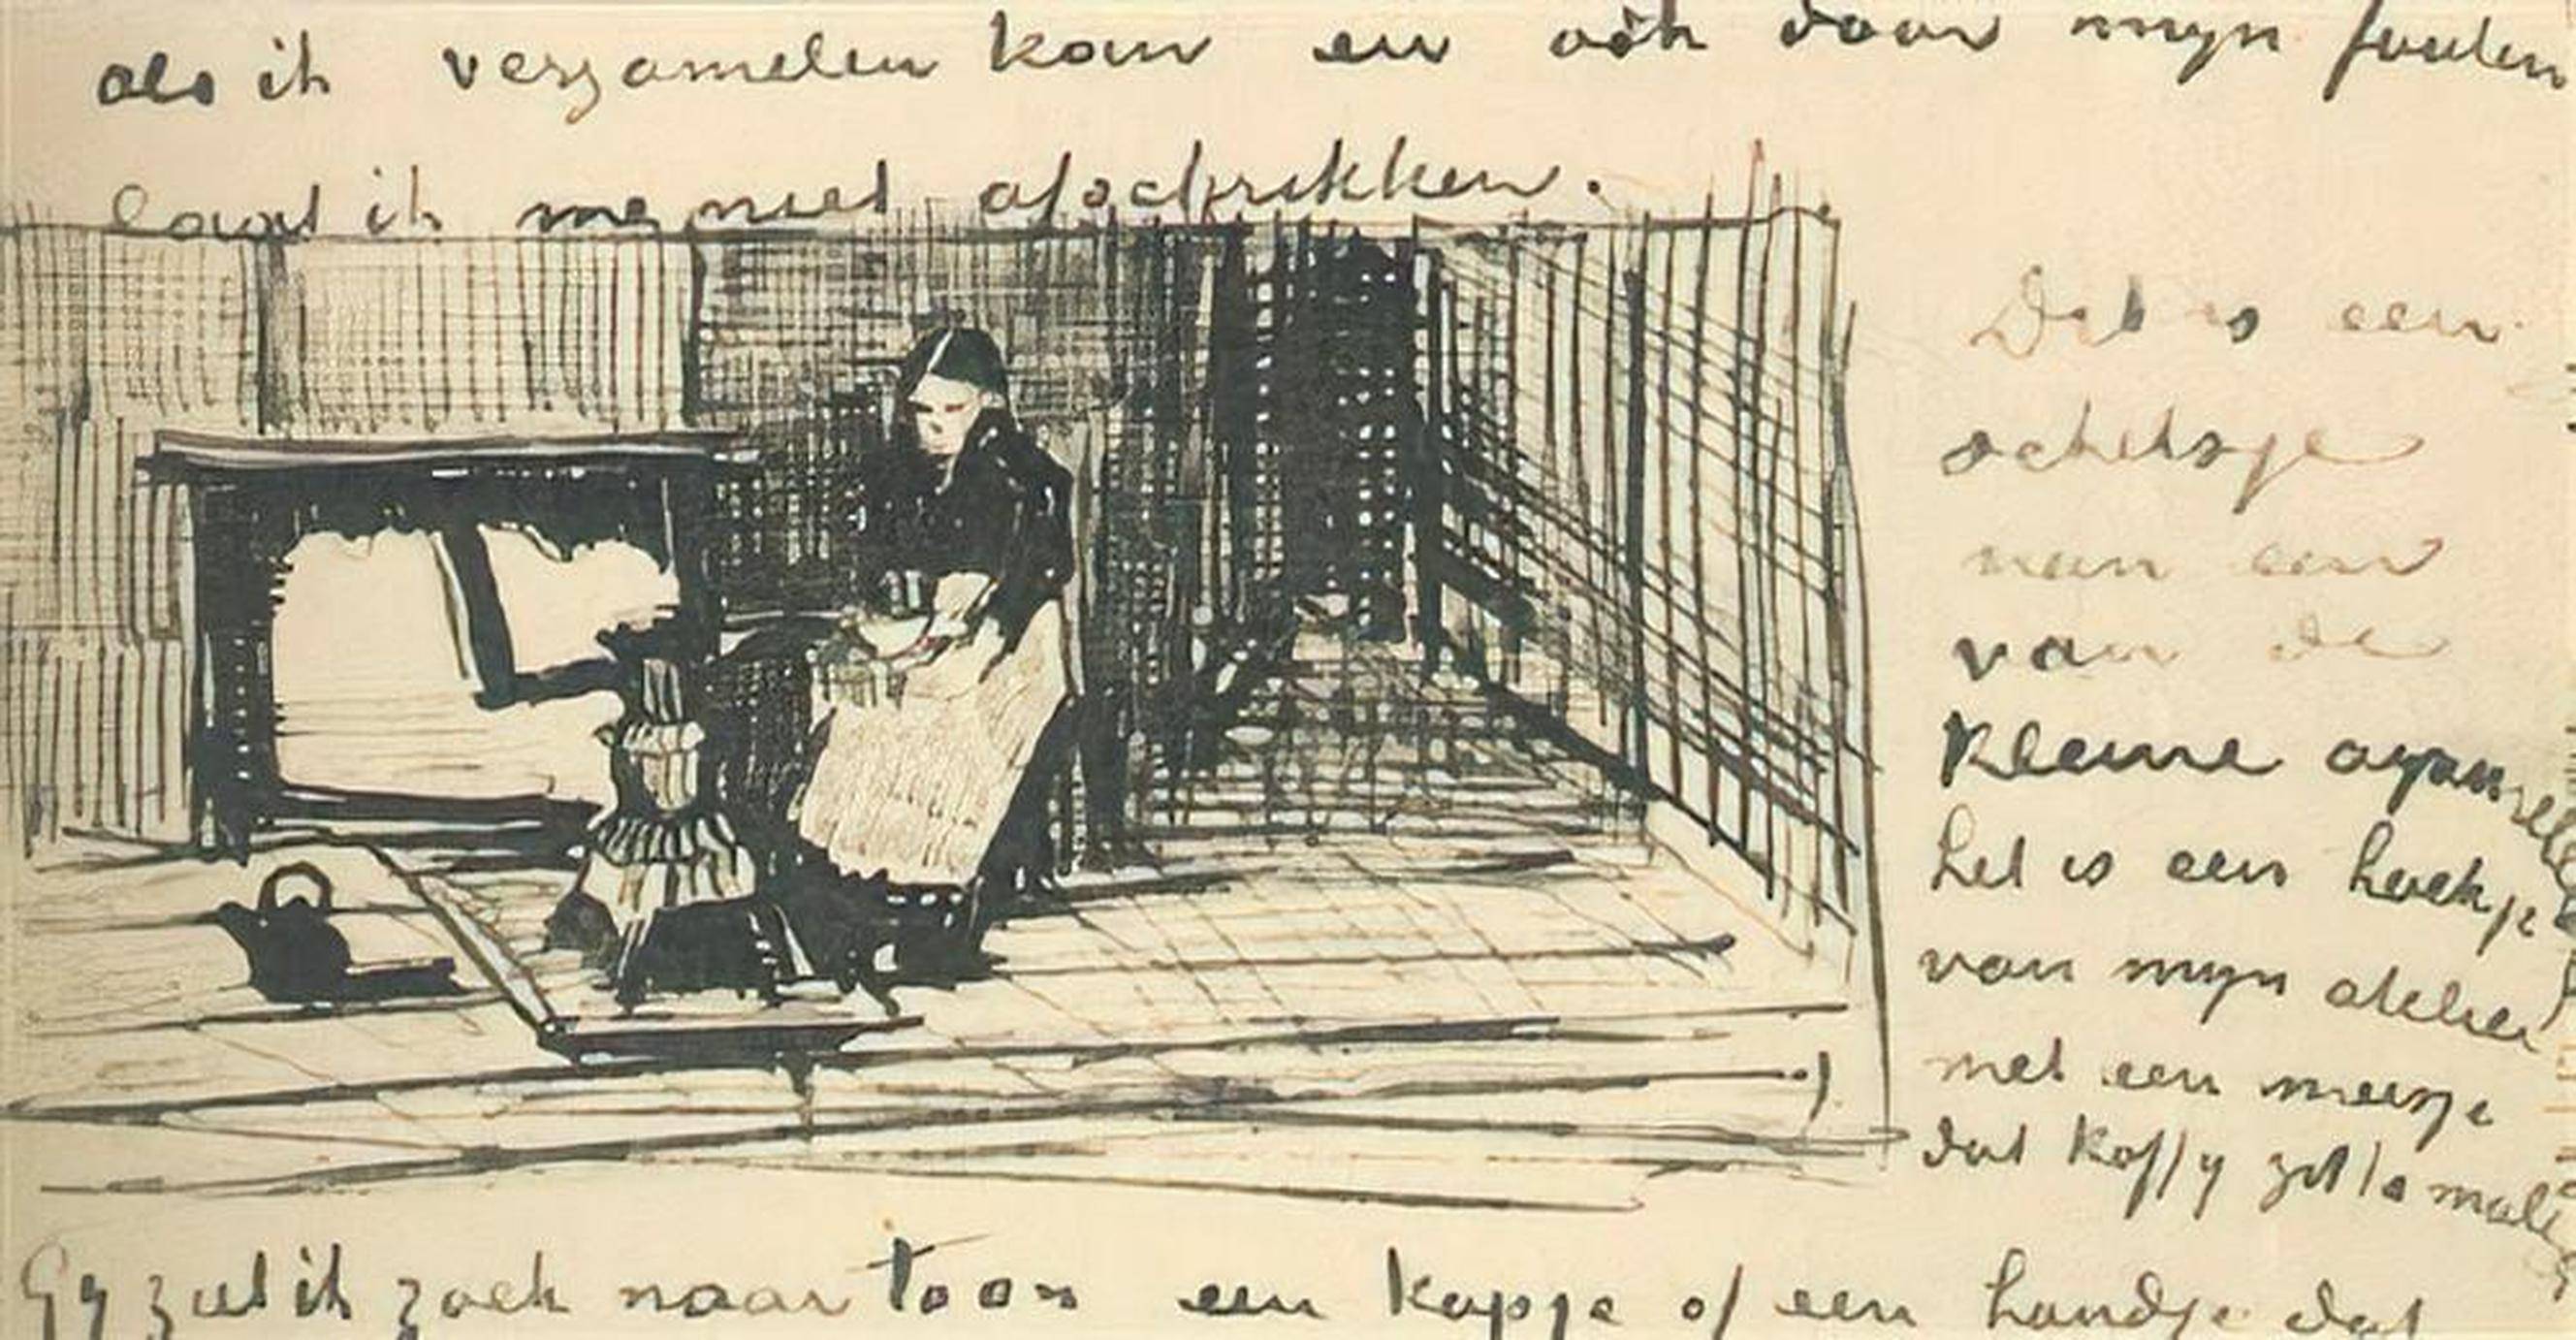 als ik verzamelen kan en ook door mijn fouten
laat ik me niet afschrikken.
Dit is een
schetsje
van een
van de
kleine aquarelle
het is een hoekje
van mijn atelier
met een meisje
dat koffy zit te male
Gy ziet ik zoek naar toon een kopje of een handje dat